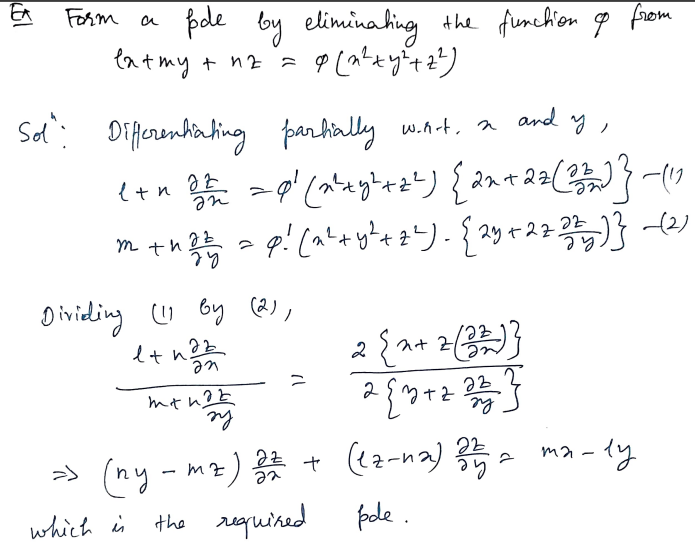 Ex Form a pde by eliminating the function φ from
lx+my + nz = φ(x²+y²+z²)
Solⁿ: Differentiating partially w.r.t. x and y,
l + n ∂z/∂x = φ'(x²+y²+z²) {2x+2z(∂z/∂x)} —(1)
m + n ∂z/∂y = φ'.(x²+y²+z²). {2y+2z ∂z/∂y)} —(2)
Dividing (1) by (2),
(l + n ∂z/∂x)/(m + n ∂z/∂y) = 2{x+z(∂z/∂x)}/2{y+z ∂z/∂y}
⇒ (ny - mz) ∂z/∂x + (lz-nx) ∂z/∂y = mx - ly
which is the required pde.